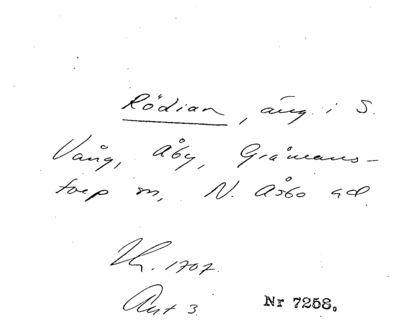 Rödian, äng i S.
Vång, Åby, Gråmans-
torp sn, N. Åsbo hd
Th. 1707.
Ant 3. Nr 7258.